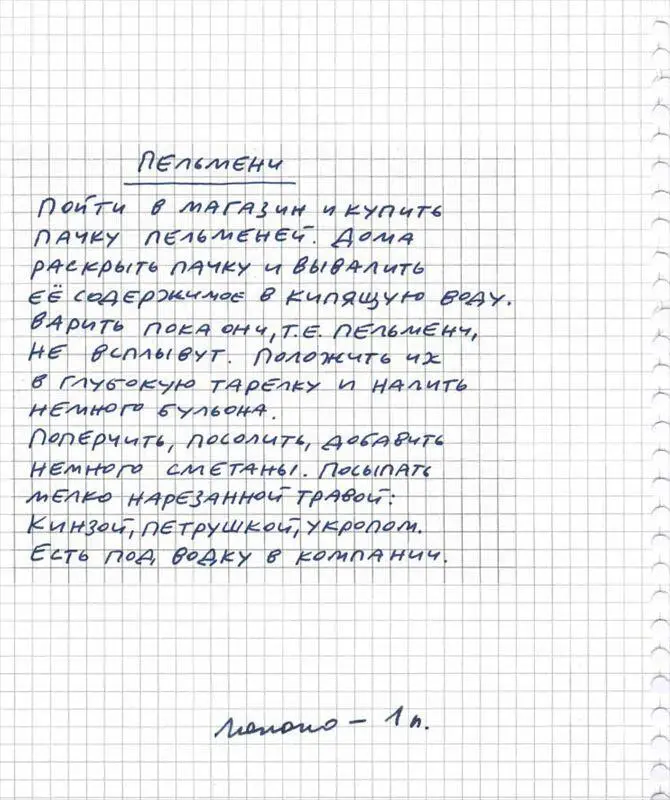 ПЕЛЬМЕНИ
ПОЙТИ В МАГАЗИН И КУПИТЬ
ПАЧКУ ПЕЛЬМЕНЕЙ. ДОМА
РАСКРЫТЬ ПАЧКУ И ВЫВАЛИТЬ
ЕЁ СОДЕРЖИМОЕ В КИПЯЩУЮ ВОДУ.
ВАРИТЬ ПОКА ОНИ, Т.Е. ПЕЛЬМЕНИ,
НЕ ВСПЛЫВУТ. ПОЛОЖИТЬ ИХ
В ГЛУБОКУЮ ТАРЕЛКУ И НАЛИТЬ
НЕМНОГО БУЛЬОНА.
ПОПЕРЧИТЬ, ПОСОЛИТЬ, ДОБАВИТЬ
НЕМНОГО СМЕТАНЫ. ПОСЫПАТЬ
МЕЛКО НАРЕЗАННОЙ ТРАВОЙ:
КИНЗОЙ, ПЕТРУШКОЙ, УКРОПОМ.
ЕСТЬ ПОД ВОДКУ В КОМПАНИИ.
– 1 п.